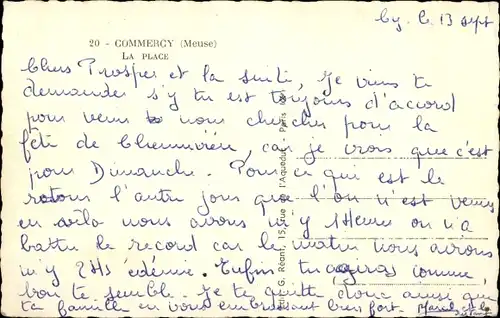 Cy. le 13 sept
20 - COMMERCY (Meuse)
LA PLACE
Chers Prosper et la suite, Je viens te
demander s'y tu est toujours d'accord
pour venir nous chercher pour la
fête de, car je crois que c'est
pour Dimanche. Pour ce qui est le
retour l'autre jour que l'on n'est venus
en vélo nous avons m'y 1 Heure on n'a
battu le record car le matin nous avions
m'y 2Hs et demie. Enfin tu comme
bon te semble. Je te quitte donc ainsi que
ta famille en vous embrassant bien fort. Marcel et la
G. Réant, 115, rue de l'Aqueduc - Paris